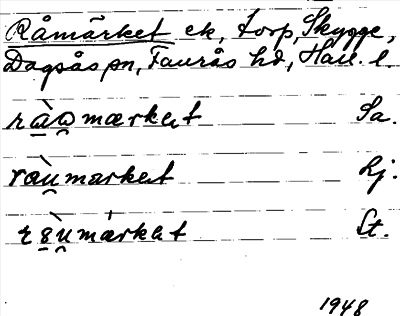 Råmärket ek, torp, Skygge,
Dagsås sn, Faurås hd, Hall. l.
ràωmærkət Sa.
raùmarkət Lj.
rɤùmárkət St.
1948